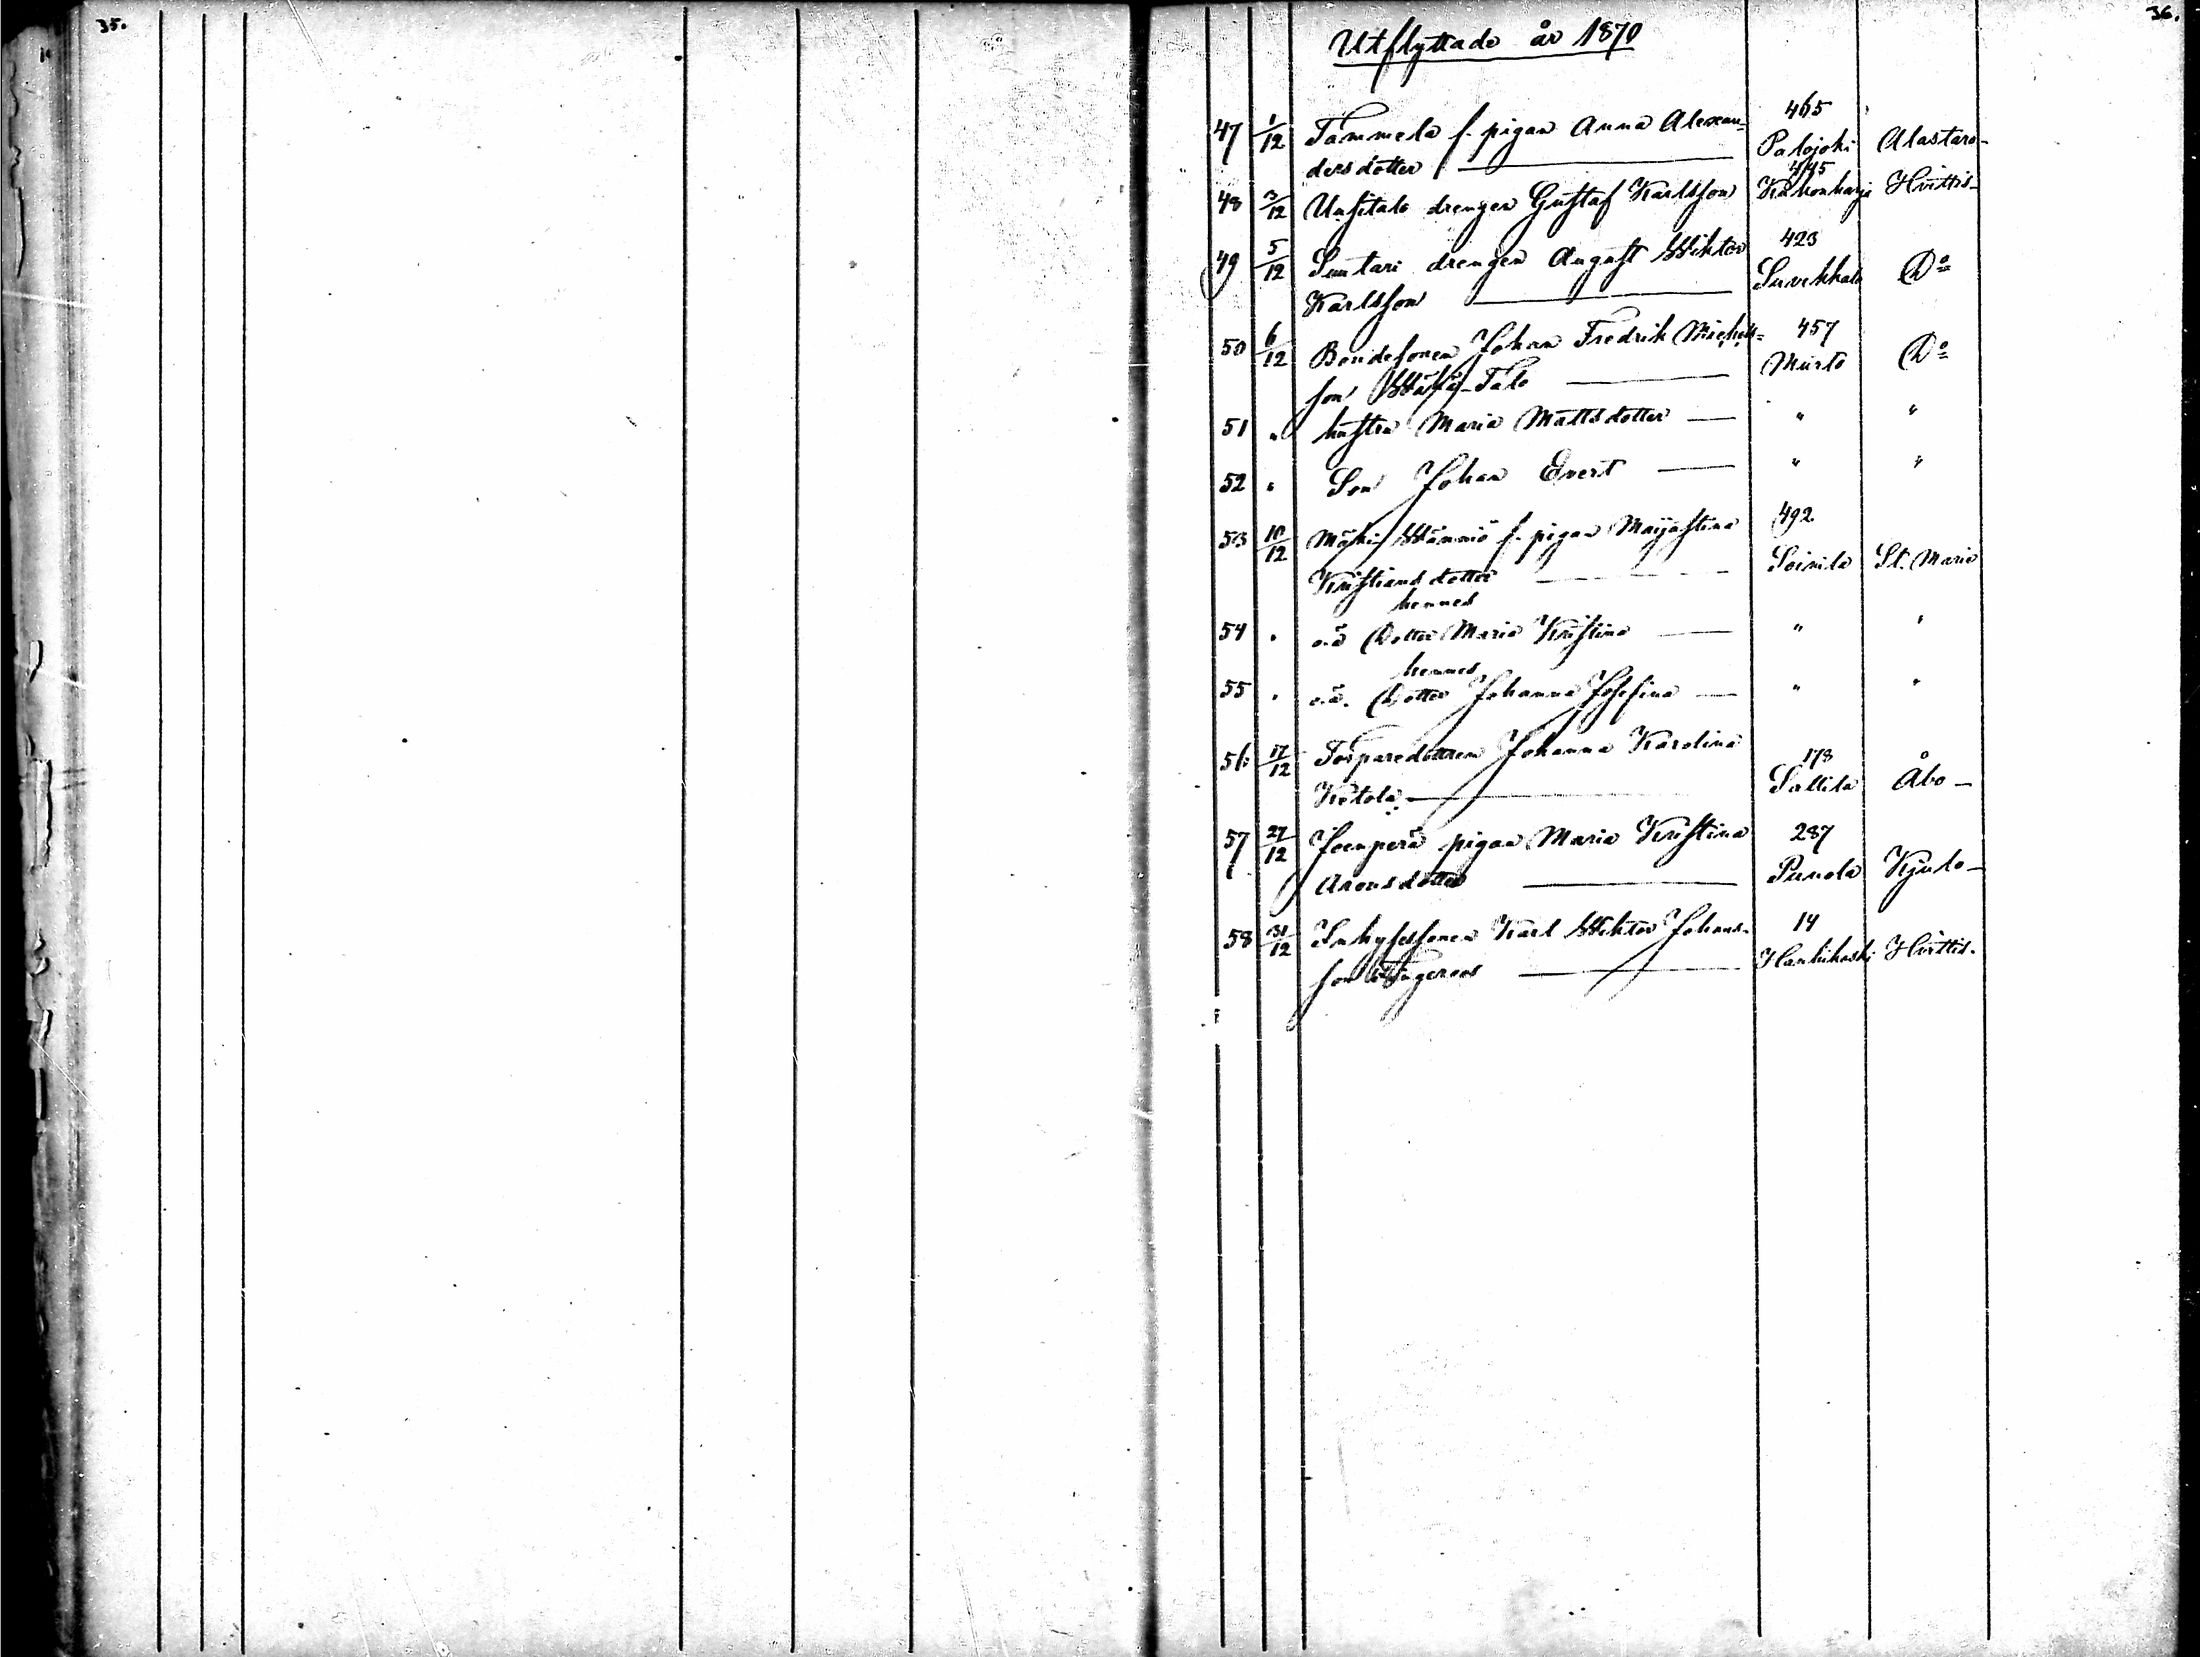 35.
36.
Utflyttade år 1870
47 1/12 Tammela f. pigan Anna Alexan= 465
dersdotter — Palojoki Alastaro-
48 3/12 Uusitalo drengen Gustaf Karlsson 445 Kakonharja Hvittis-
49 5/12 Suntari drengen August Wiktor 423
Karlsson — Suvekkala Do
50 6/12 Bondesonen Johan Fredrik Michels= 457
son Wähä-Talo — Murto Do
51 " hustru Maria Mattsdotter — " "
52 " Son Johan Evert — " "
53 10/12 Mäki Wänniö f. pigan Maijastina 492
Kristiansdotter — Soinila St. Marie
hennes
54 " o.ä Dotter Maria Kristina — " "
hennes
55 " o.ä. Dotter Johanna Josefina — " "
56 17/12 Torparedottren Johanna Karolina 178
Ketola — Sallila Åbo —
57 27/12 Joenperä pigan Maria Kristina 287
Aronsdotter — Punola Kjulo —
58 31/12 Inhysessonen Karl Wiktor Johans- 14
son Wingeroos — Hanhikoski Hvittis.